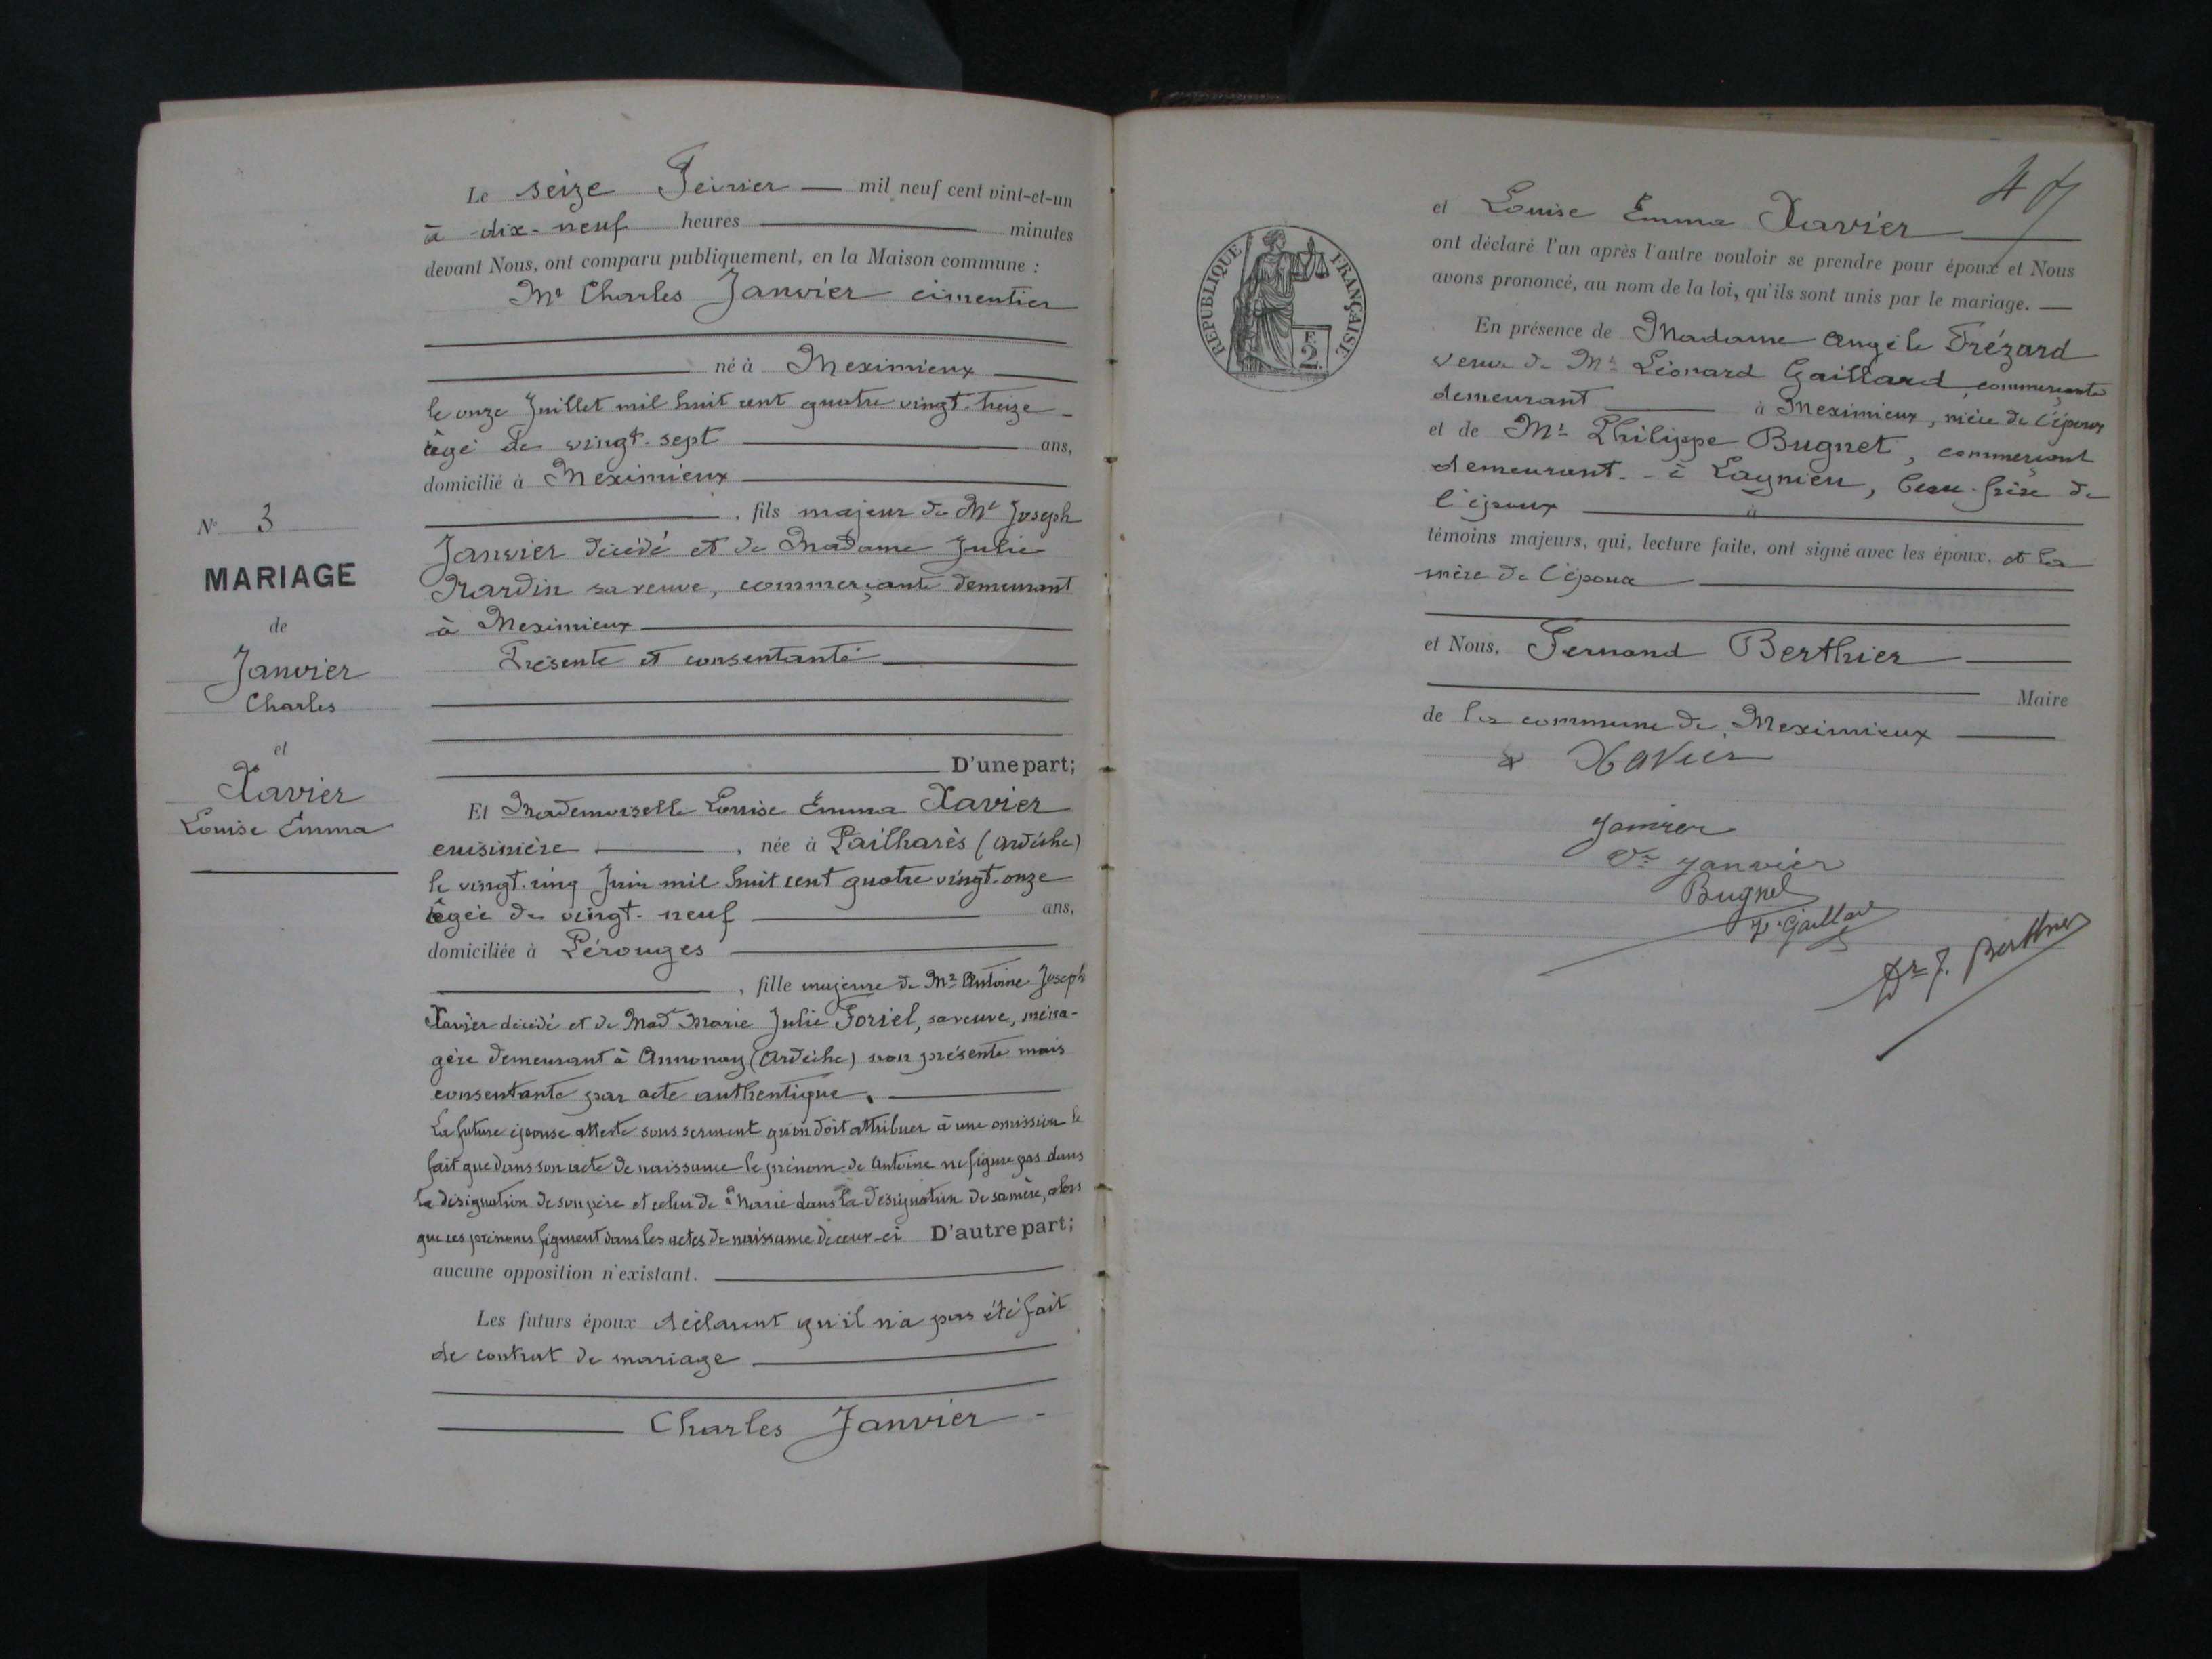 Le seize Février — mil neuf cent vint-et-un
à dix-neuf heures — minutes
devant Nous, ont comparu publiquement, en la Maison commune :
Mr Charles Janvier cimentier
né à Meximieux
le onze Juillet mil huit cent quatre vingt-treize
âgé de vingt-sept — ans,
domicilié à Meximieux
, fils majeur de Mr Joseph
Janvier décédé et de Madame Julie
Nardin sa veuve, commerçante demeurant
à Meximieux
Présente et consentante
D'une part;
Et Mademoiselle Louise Emma Xavier
cuisinière — , née à Pailharès (Ardèche)
le vingt-cinq Juin mil huit cent quatre vingt-onze
âgée de vingt-neuf — ans,
domiciliée à Pérouges
, fille majeure de Mr Antoine Joseph
Xavier décédé et de Mad Marie Julie Foriel, sa veuve, ména-
gère demeurant à Annonay (Ardèche) non présente mais
consentante par acte authentique.
La future épouse atteste sous serment qu'on doit attribuer à une omission le
fait que dans son acte de naissance le prénom de Antoine ne figure pas dans
la désignation de son père et celui de Marie dans la désignation de sa mère, alors
que ces prénoms figurent dans les actes de naissance de ceux-ci D'autre part;
aucune opposition n'existant.
Les futurs époux déclarent qu'il n'a pas été fait
de contrat de mariage
Charles Janvier
N° 3
MARIAGE
de
Janvier
Charles
et
Xavier
Louise Emma
RÉPUBLIQUE FRANÇAISE
2
et Louise Emma Xavier
ont déclaré l'un après l'autre vouloir se prendre pour époux et Nous
avons prononcé, au nom de la loi, qu'ils sont unis par le mariage. —
En présence de Madame Angèle Frézard
veuve de Mr Léonard Gaillard, commerçante
demeurant — à Meximieux, nièce de l'époux
et de Mr Philippe Bugnet, commerçant
demeurant - à Lagnieu, beau-frère de
l'époux — à
témoins majeurs, qui, lecture faite, ont signé avec les époux, et la
mère de l'époux
et Nous, Fernand Berthier
Maire
de la commune de Meximieux
Xavier
Janvier
Ve Janvier
Bugnet
Ve Gaillard
Dr F. Berthier